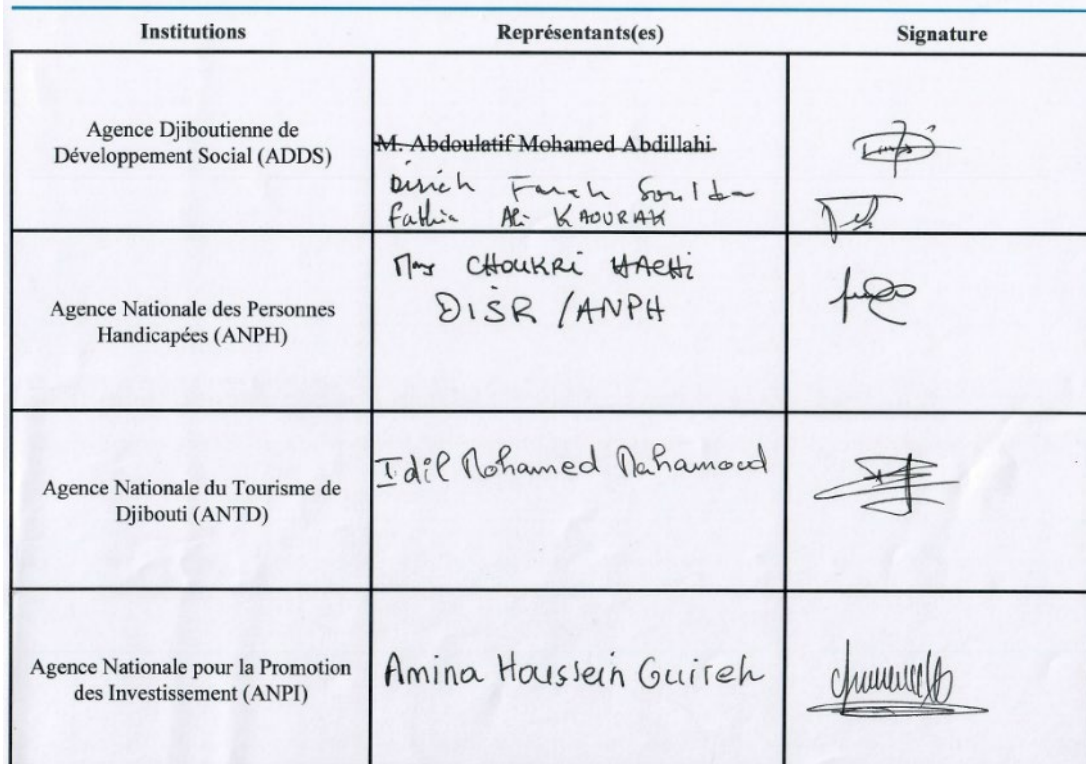 Institutions Représentants(es) Signature
Agence Djiboutienne de
Développement Social (ADDS)
M. Abdoulatif Mohamed Abdillahi
Farah
Fathia Ali KAOURAH
Agence Nationale des Personnes
Handicapées (ANPH)
CHOUKRI HACHI
DISR /ANPH
Agence Nationale du Tourisme de
Djibouti (ANTD)
Idil Mohamed Mahamoud
Agence Nationale pour la Promotion
des Investissement (ANPI)
Amina Houssein Guireh